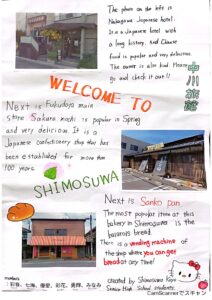 The photo on the left is
Nakagawa Japanese hotel.
It is a Japanese hotel with
a long history. And Chinese
food is popular and very delicious.
The owner is also kind. Please
go and check it out!!
中川旅館
WELCOME TO
SHIMOSUWA
Next is Fukudoya main
store. Sakura mochi is popular in Spring
and very delicious. It is a
Japanese confectionery shop that has
been established for more than
100 years.
Next is Sanko Dan
The most popular item at this
bakery in Shimosuwa is the
bananas bread.
There is a vending machine of
the shop where you can get
bread at any time!
members
Created by Shimosuwa Koyo
Senior High School students.
CamScannerでスキャン